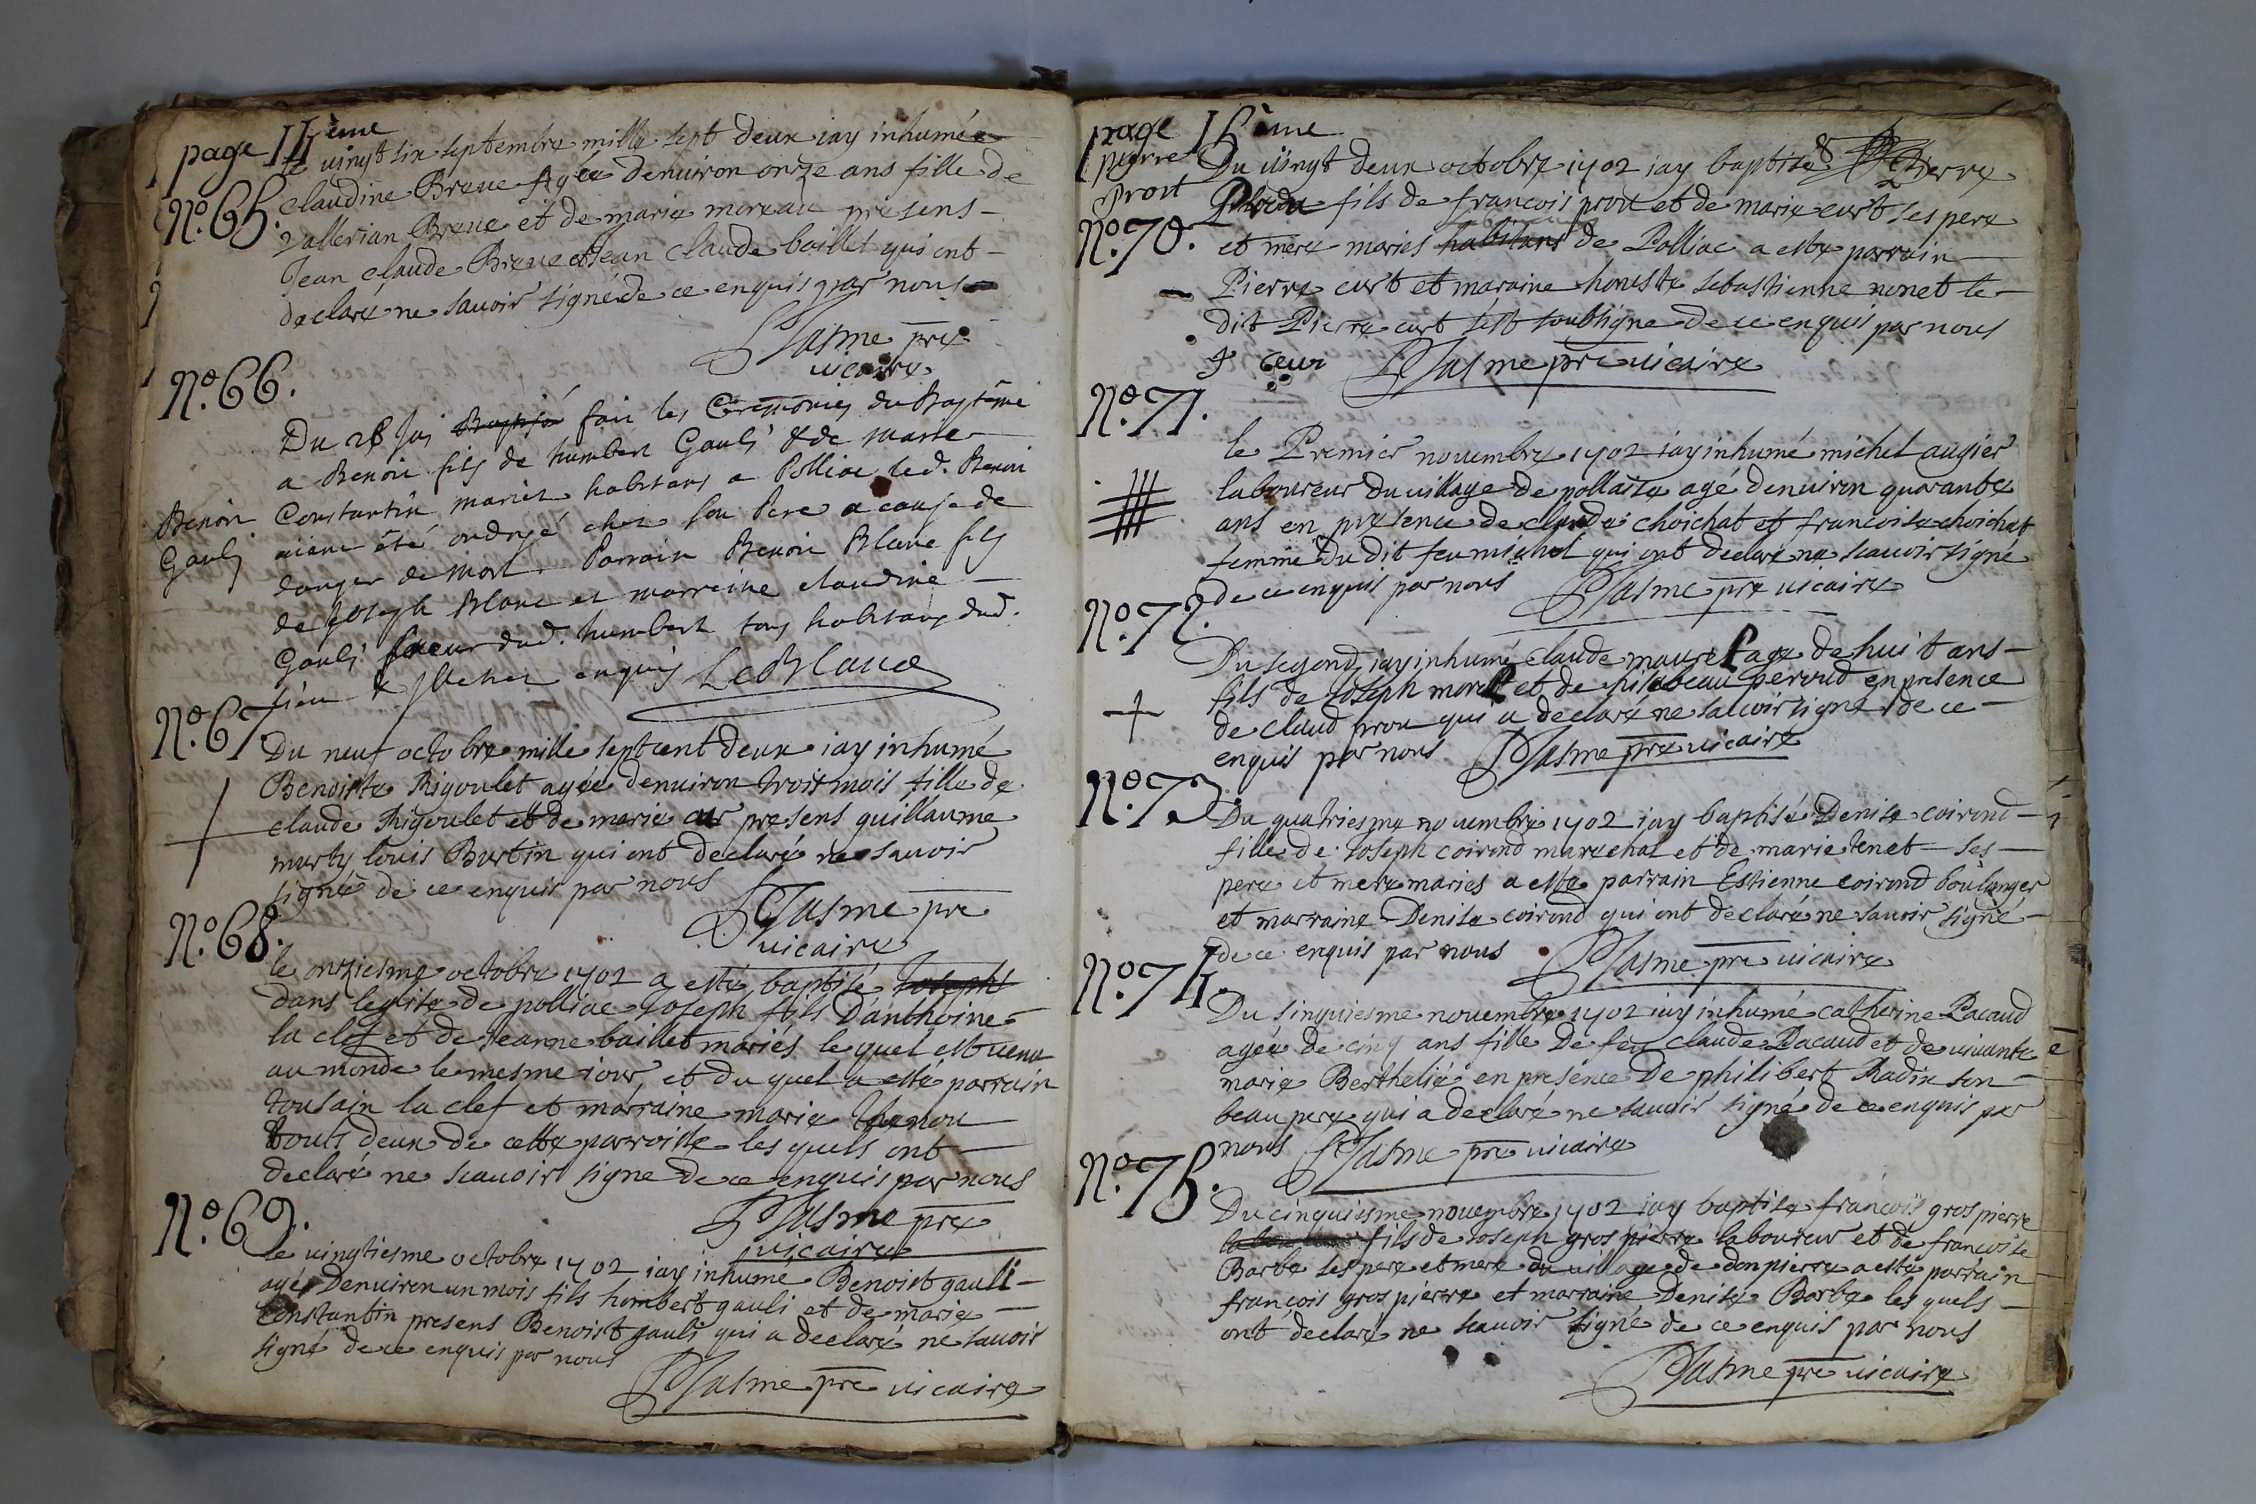 page 14ème
le vingt six septembre mille sept deux iay inhumée
No. 65. claudine Breue Agée denuiron onze ans fille de
Vallerian Breue et de marie moreau presens
Jean claude Breue et Jean claude baillet qui ont
declaré ne sauoir signé de ce enquis par nous
Jasme pre
uicaire
No. 66.
Du 28 Jai Baptisé fait les Ceremonies du Baptême
a Benoit fils de humbert Gauli & de marie
Constantin mariez habitans a Polliac led. Benoit
Benoit Gauli
aiant été ondoyé chez son Pere a cause de
danger de mort. Parrain Benoit Blanc fils
de Joseph Blanc et marreine claudine
Gauli soeur dud. humbert tous habitans dud.
lieu & illeterez enquis LeBlanc
No. 67.
Du neuf octobre mille sept cent deux iay inhumé
Benoiste Rigoulet agée denuiron trois mois fille de
claude Rigoulet et de marie presens guillaume
murty louis Burtin qui ont declaré ne sauoir
signé de ce enquis par nous
Jasme pre
uicaire
No. 68.
le onziesme octobre 1702 a esté baptisé Joseph
dans leglise de polliac Joseph fils Danthoine
la clef et de Jeanne baillet mariés le quel est uenu
au monde le mesme iour et du quel a esté parrain
tousain la clef et marraine marie thenon
touts deux de cette parroisse les quels ont
declaré ne scauoir signe de ce enquis par nous
Jasme pre
uicaire
No. 69.
le uingtiesme octobre 1702 iay inhumé Benoist gauli
agé Denuiron un mois fils humbert gauli et de marie
Constantin presens Benoist gauli qui a declaré ne sauoir
signé de ce enquis par nous
Jasme pre uicaire
page 15ème
pierre
prost
Du uingt deux octobre 1702 iay baptisé Pierre
fils de francois prost et de marie curt ses pere
No. 70.
et mere maries habitans de Polliac a este parrain
Pierre curt et maraine honeste sebastienne nonet le
dit Pierre curt sest soubsigne de ce enquis par nous
Jasme pre uicaire
No. 71.
le Premier nouembre 1702 iay inhumé michel augier
laboureur du uillage de pollaise agé denuiron quarante
ans en presence de claude choichat et francoise choichat
femme du dit feu michel qui ont declaré ne scauoir signé
de ce enquis par nous Jasme pre uicaire
No. 72.
Du segond iay inhumé claude morel age de huit ans
fils de Joseph morel et de philebeau peroud en presence
de claud prou qui a declaré ne sauoir signé de ce
enquis par nous Jasme pre uicaire
No. 73.
Du quatriesme nouembre 1702 iay baptisé Denise coirond
fille de Joseph coirond marechal et de marie tenet ses
pere et mere maries a esté parrain Estienne coirond boulanger
et marraine Denise coirond qui ont declaré ne sauoir signé
de ce enquis par nous Jasme pre uicaire
No. 74.
Du sinquiesme nouembre 1702 iay inhumé catherine Pacaud
agée de cinq ans fille De feu claude Pacaud et de uiuante
marie Berthelié en presence De philibert Radix son
beau pere qui a declaré ne sauoir signé de ce enquis par
nous Jasme pre uicaire
No. 75.
Du cinquiesme nouembre 1702 iay baptise francois gros pierre
fils de Joseph gros pierre laboureur et de francoise
Barbe ses pere et mere du uillage de dompierre a esté parrain
francois gros pierre et marraine Denise Barbe les quels
ont declaré ne scauoir signé de ce enquis par nous
Jasme pre uicaire